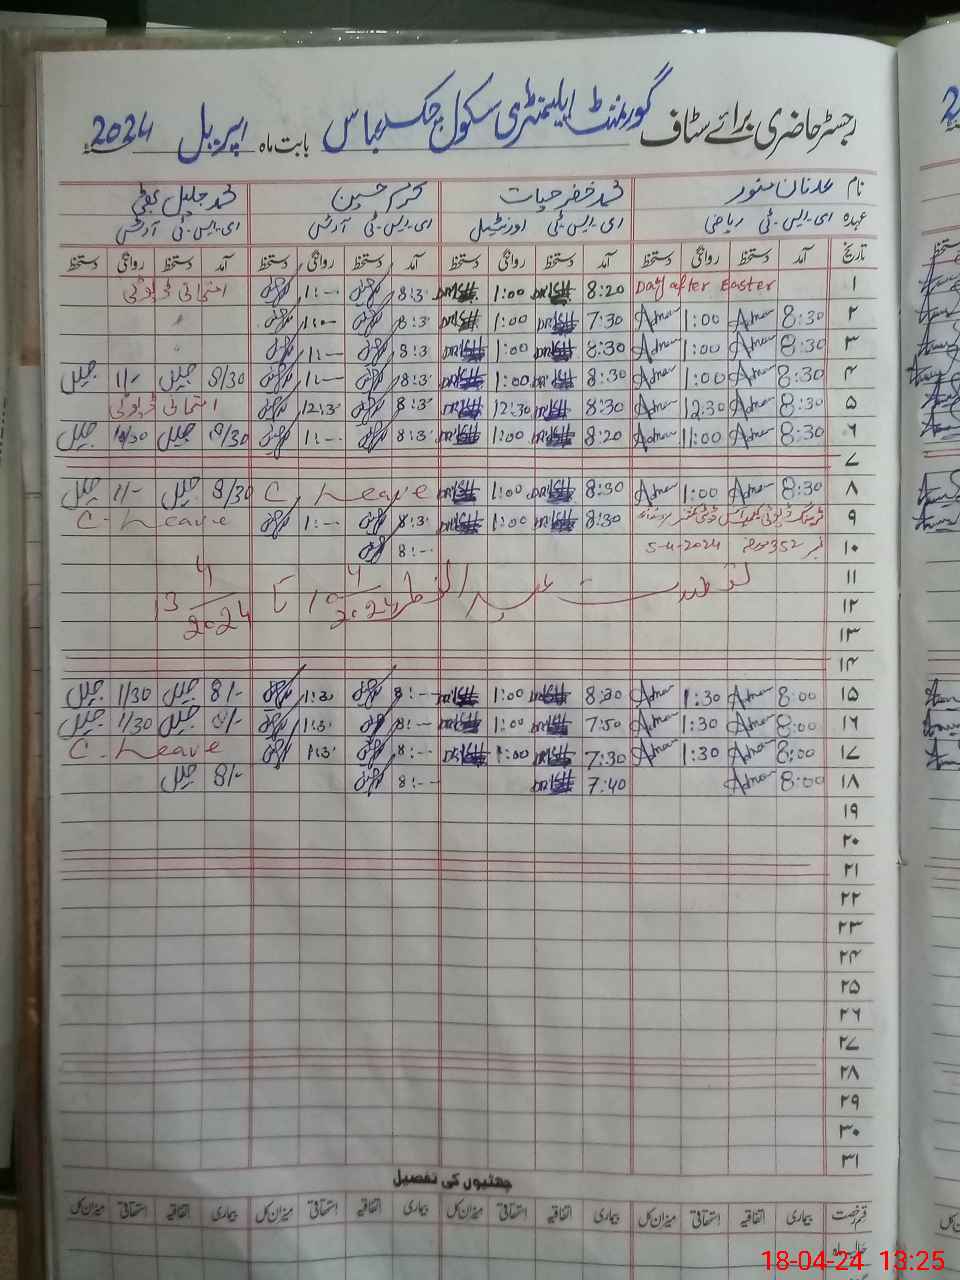 رجسٹر حاضری برائے سٹاف گورنمنٹ ایلیمنٹری سکول چک عباس بابت ماہ اپریل 2024ء
نام عدنان منور محمد خضر حیات کرم حسین محمد جلیل بھٹی
عہدہ ای۔ایس۔ٹی ریاضی ای۔ایس۔ٹی اورنٹیل ای۔ایس۔ٹی آرٹس ای۔ایس۔ٹی آرٹس
تاریخ آمد دستخط روانگی دستخط آمد دستخط روانگی دستخط آمد دستخط روانگی دستخط آمد دستخط روانگی دستخط
۱ Day after Easter 8:20 1:00 8:3۰ 1:-- امتحانی ڈیوٹی
۲ 8:30 Adnan 1:00 Adnan 7:30 1:00 8:3۰ 1:--
۳ 8:30 Adnan 1:00 Adnan 8:30 1:00 8:3۰ 1:--
۴ 8:30 Adnan 1:00 Adnan 8:30 1:00 8:3۰ 1:-- 8/30 جلیل 1/- جلیل
۵ 8:30 Adnan 12:30 Adnan 8:30 12:30 8:3۰ 12:3۰ امتحانی ڈیوٹی
۶ 8:30 Adnan 1:00 Adnan 8:20 1:00 8:3۰ 1:-- جلیل جلیل
۷
۸ 8:30 Adnan 1:00 Adnan 8:30 1:00 C, Leave 8/30 جلیل 1/- جلیل
۹ 8:30 1:00 8:3۰ 1:-- C-Leave
۱۰ نمبر 352 مورخہ 5-4-2024 8:--
۱۱ تعطیلات عید الفطر 10/4/2024 تا 13/4/2024
۱۲
۱۳
۱۴
۱۵ 8:00 Adnan 1:30 Adnan 8:30 1:00 8:-- 1:3۰ 8/- جلیل 1/30 جلیل
۱۶ 8:00 Adnan 1:30 Adnan 7:50 1:00 8:-- 1:3۰ 8/- جلیل 1/30 جلیل
۱۷ 8:00 Adnan 1:30 Adnan 7:30 1:00 8:-- 1:3۰ C-Leave
۱۸ 8:00 Adnan 7:40 8:-- 8/- جلیل
۱۹
۲۰
۲۱
۲۲
۲۳
۲۴
۲۵
۲۶
۲۷
۲۸
۲۹
۳۰
۳۱
چھٹیوں کی تفصیل
قسم رخصت بیماری اتفاقیہ استحقاقی میزان کل بیماری اتفاقیہ استحقاقی میزان کل بیماری اتفاقیہ استحقاقی میزان کل بیماری اتفاقیہ استحقاقی میزان کل
18-04-24 13:25